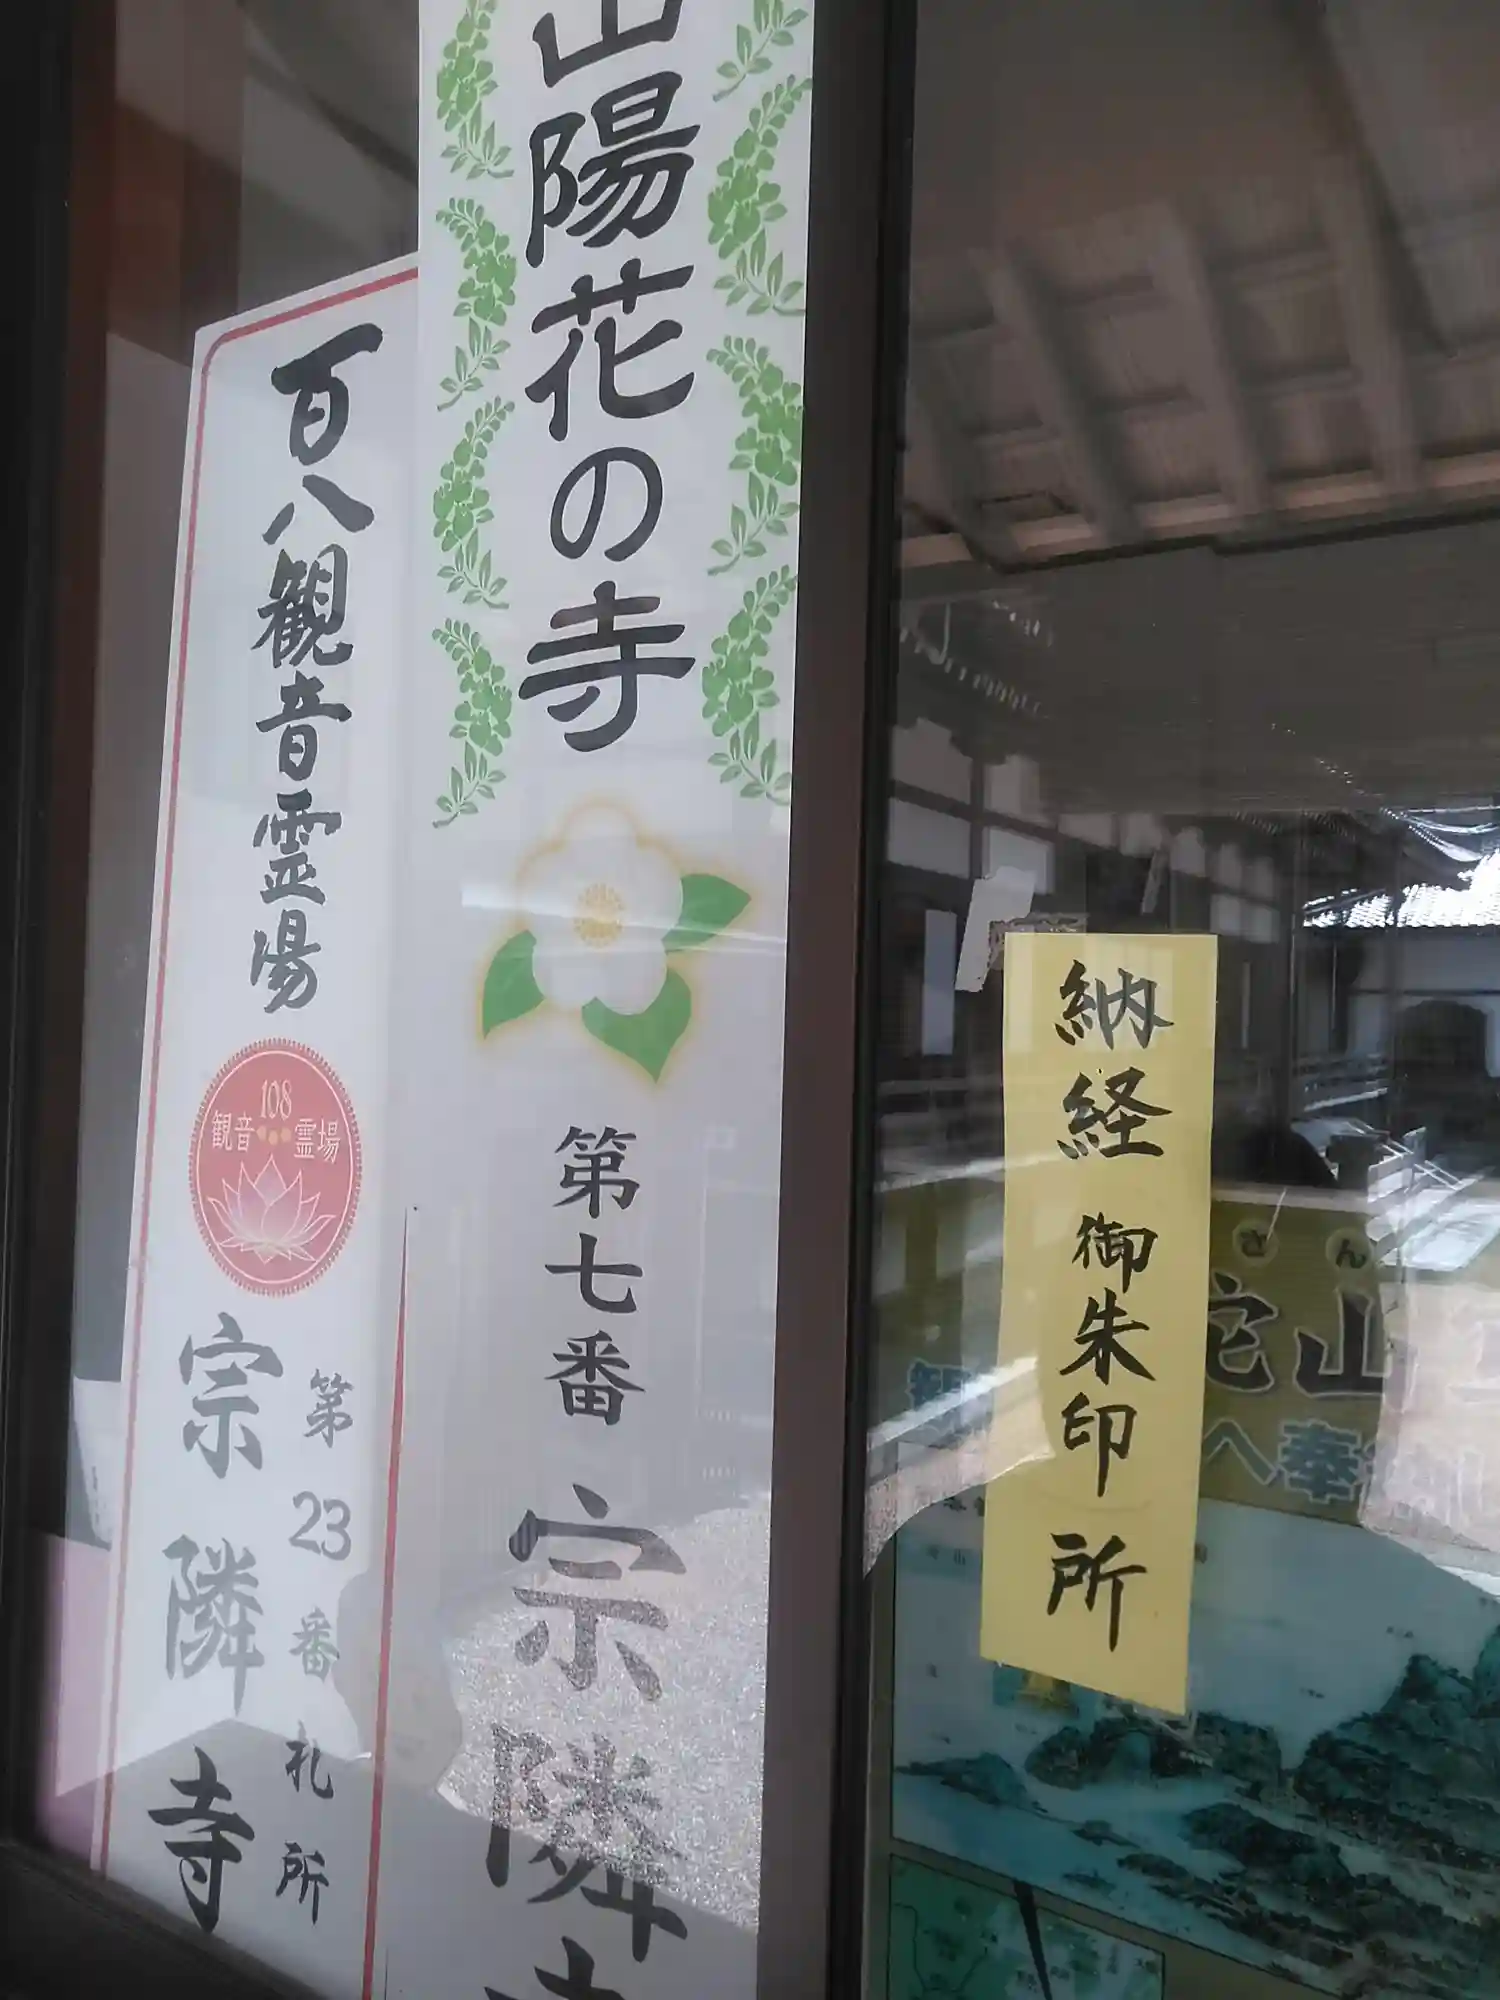 山陽花の寺
第七番
宗隣寺
百八観音霊場
108
観音 霊場
第23番札所
宗隣寺
納経
御朱印
所
さん
陀山
観
八奉